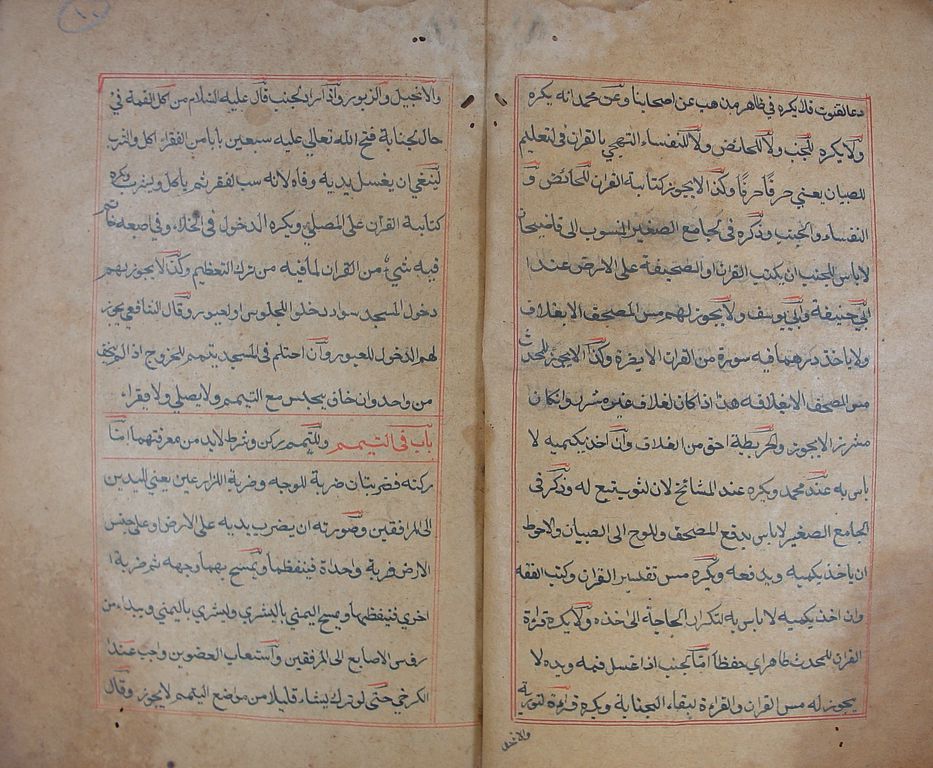 دعاالقنوت فلا يكره في ظاهر مذهب عن اصحابنا وعن محمد انه يكره
ولا يكره للجنب ولا للحائض ولا للنفساء التهجي بالقران ولتعليم
للصبيان يعني حرفًا حرفًا وكذا لا يجوز كتابة القران للحائض و
النفساء والجنب وذكره في الجامع الصغير المنسوب الى قاضيخان
لا باس للجنب ان يكتب القران او الصحيفة على الارض عند ا
ابي حنيفة وابي يوسف ولا يجوز لهم مس المصحف الا بغلاف
ولا ياخذ درهما فيه سورة من القران الا بصرة وكذا لا يجوز للمحدث
مس المصحف الا بغلافه هذا اذا كان لغلاف غير مشرز وان كان
مشرز الا يجوز والخريطة احق من الغلاف وان اخذ بكميه لا
باس به عند محمد ويكره عند المشائخ لان لثوب تبع له وذكر في
الجامع الصغير لا باس بدفع المصحف واللوح الى الصبيان والاحوط
ان ياخذ بكميه ويدفعه ويكره مس تفسير القران وكتب الفقه
وان اخذ بكميه لا باس به لتكرار الحاجة الى اخذه ولا يكره قراءة
القران للمحدث ظاهرا اي حفظا امّا لجنب اذا غسل فمه ويده لا
يجوز له مس القران والقراءة لبقاء الجنابة ويكره قراءة لتورية
والانجيل
١١
والانجيل والزبور واذا اراد لجنب قال عليه السلام من اكل القمة في
حال لجنابة فتح الله تعالي عليه سبعين بابا من الفقر اكل والشرب
لينبغي ان يغسل يديه وفاه لانه سب لفقر ثم ياكل ويشرب ويكره
كتابة القران على المصلي ويكره الدخول في الخلاء وفي اصبعه خاتم
فيه شيئ من القران لما فيه من ترك التعظيم وكذا لا يجوز بهم
دخول المسجد سواء دخلوا للجلوس او لعبور وقال الشافعي يجوز
لهم الدخول للعبور وان احتلم في المسجد يتيمم للخروج اذا لم يخف
من واحد وان خاف يجلس مع التيمم ولا يصلي ولا يقراء
باب في التيمم وللتيمم ركن وشرط لابد من معرفتهما امّا
ركنه فضربتان ضربة للوجه وضربة للذراعين يعني لليدين
الى المرفقين وصورته ان يضرب يديه على الارض او على جنس
الارض ضربة واحدة فينفظهما ويمسح بهما وجهه ثم ضربة ا
اخري فينفظهما ويمسح اليمني باليشري وليشري باليمني ويبداء من
رؤس الاصابع الى المرفقين واستعاب العضوين واجب عند ا
الكرخي حتي لو ترك شياء قليلا من مواضع التيمم لا يجوز وقال